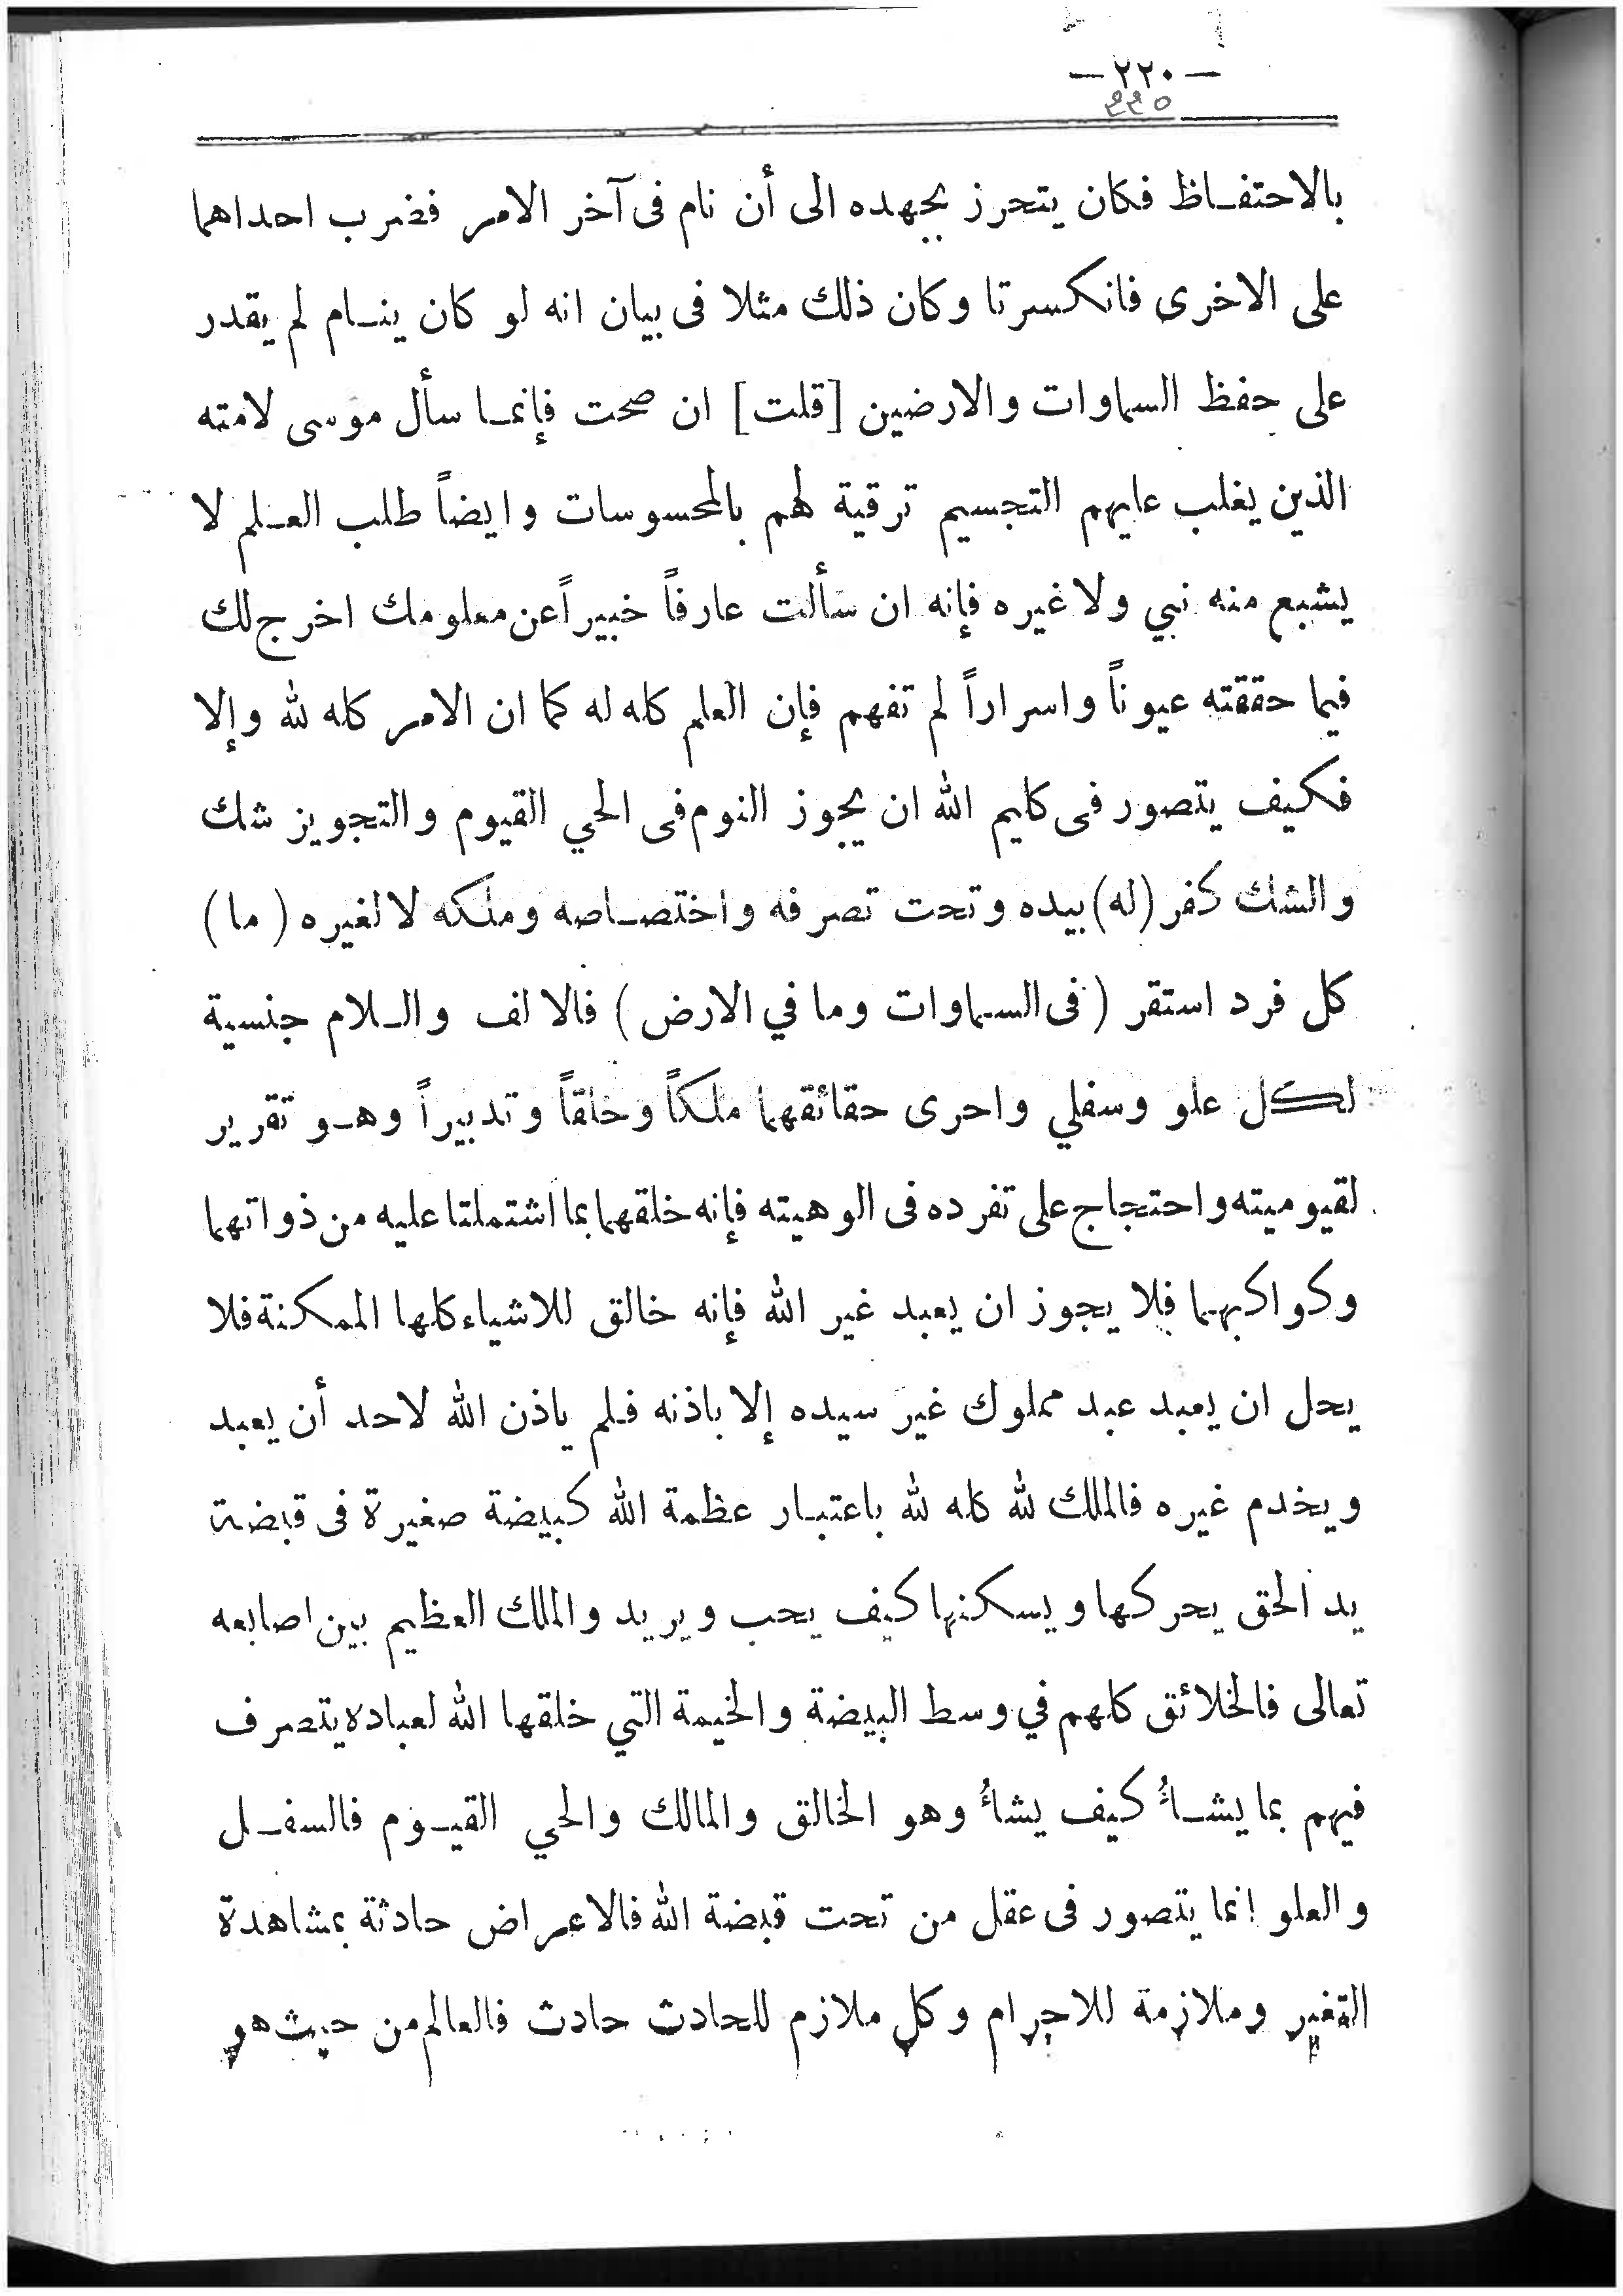 — ٢٢٠ —
٢٢٥
بالاحتفـاظ فكان يتحرز بجهده الى أن نام فى آخر الامر فضرب احداهما
على الاخرى فانكسرتا وكان ذلك مثلا فى بيان انه لو كان ينـام لم يقدر
على حفظ السماوات والارضين [قلت] ان صحت فإنمـا سأل موسى لامته
الذين يغلب عليهم التجسيم ترقية لهم بالمحسوسات وايضاً طلب العـلم لا
يشبع منه نبي ولا غيره فإنه ان سألت عارفاً خبيراً عن معلومك اخرج لك
فيما حققته عيوناً واسراراً لم تفهم فإن العلم كله له كما ان الامر كله لله وإلا
فكيف يتصور فى كليم الله ان يجوز النوم فى الحي القيوم والتجويز شك
والشك كفر (له) بيده وتحت تصرفه واختصـاصه وملكه لا لغيره (ما)
كل فرد استقر (فى السماوات وما في الارض) فالالف والـلام جنسية
لكل علو وسفلي واحرى حقائقهما ملكاً وخلقاً وتدبيراً وهـو تقرير
لقيوميته واحتجاج على تفرده فى الوهيته فإنه خلقهما بما اشتملتا عليه من ذواتهما
وكواكبهـما فلا يجوز ان يعبد غير الله فإنه خالق للاشياء كلها الممكنة فلا
يحل ان يعبد عبد مملوك غير سيده إلا باذنه فـلم ياذن الله لاحد أن يعبد
ويخدم غيره فالملك لله كله لله باعتبـار عظمة الله كبيضة صغيرة فى قبضة
يد الحق يحركها ويسكنها كيف يحب ويريد والملك العظيم بين اصابعه
تعالى فالخلائق كلهم في وسط البيضة والخيمة التي خلقها الله لعباده يتصرف
فيهم بما يشـاءُ كيف يشاءُ وهو الخالق والمالك والحي القيـوم فالسفـل
والعلو إنما يتصور فى عقل من تحت قبضة الله فالاعراض حادثة بمشاهدة
التغير وملازمة للاجرام وكل ملازم للحادث حادث فالعالم من حيث هو